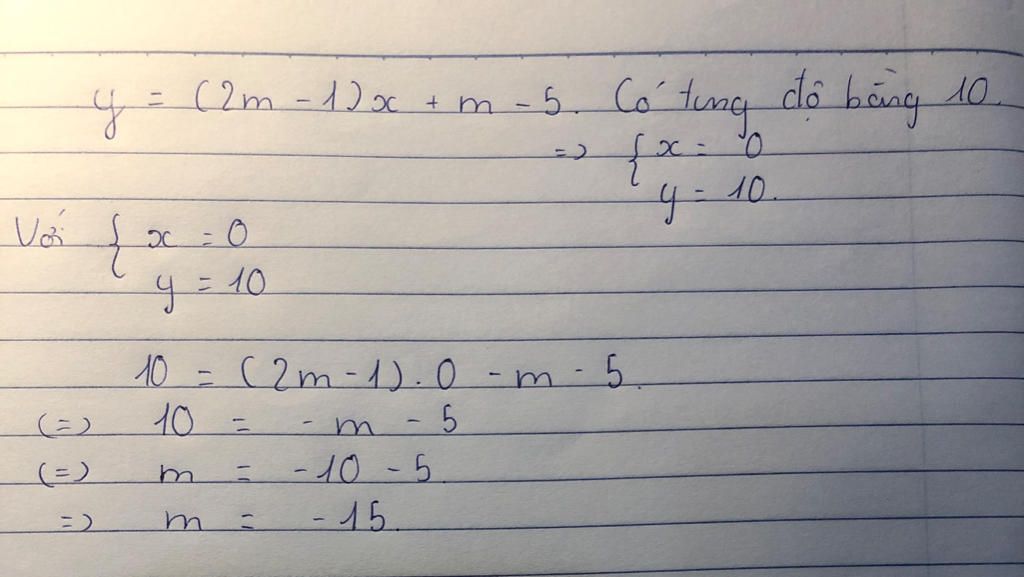 y = (2m - 1)x + m - 5. Có tung độ bằng 10.
=> { x = 0
y = 10.
Với { x = 0
y = 10
10 = (2m - 1). 0 - m - 5.
(=) 10 = - m - 5
(=) m = - 10 - 5
=> m = - 15.